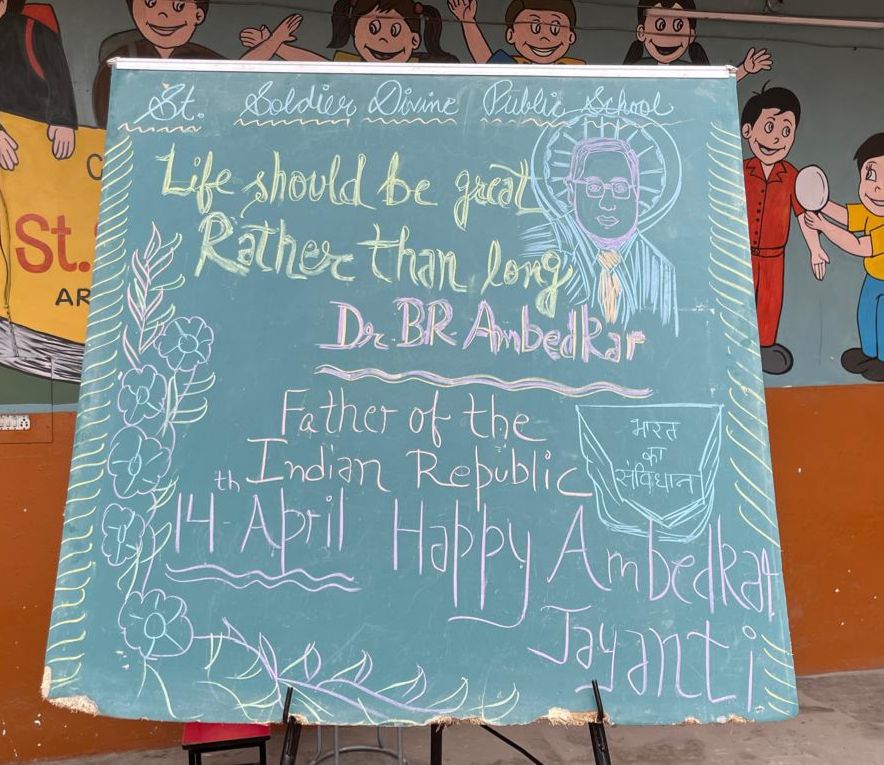 St. Soldier Divine Public School
Life should be great
Rather than long
Dr BR Ambedkar
Father of the
Indian Republic
भारत
का
संविधान
14th April
Happy Ambedkar
Jayanti
St.
AR